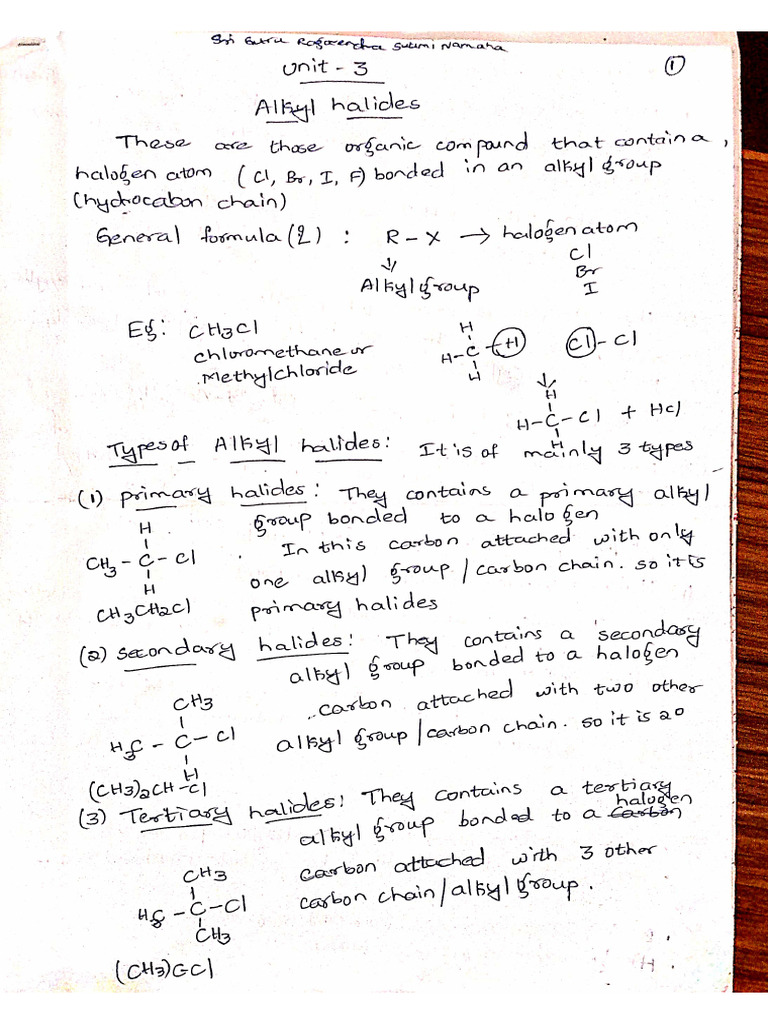 Sri Guru Ragavendra Swami Namaha
Unit - 3
1
Alkyl halides
These are those organic compound that contain a,
halogen atom (Cl, Br, I, F) bonded in an alkyl group
(hydrocabon chain)
General formula (2) : R - X → halogen atom
Cl
Br
I
Alkyl group
Eg: CH3Cl
chloromethane or
Methylchloride
H
H-C-H Cl-Cl
H
H
H-C-Cl + HCl
H
Types of Alkyl halides: It is of mainly 3 types
(1) primary halides: They contains a primary alkyl
group bonded to a halogen
H
CH3-C-Cl
H
CH3CH2Cl
In this carbon attached with only
one alkyl group/carbon chain. so it is
primary halides
(2) secondary halides: They contains a secondary
alkyl group bonded to a halogen
CH3
H3C-C-Cl
H
(CH3)2CH-Cl
carbon attached with two other
alkyl group/carbon chain. so it is 2o
(3) Tertiary halides: They contains a tertiary
alkyl group bonded to a carbon halogen
CH3
H3C-C-Cl
CH3
(CH3)CCl
carbon attached with 3 other
carbon chain/alkyl group.